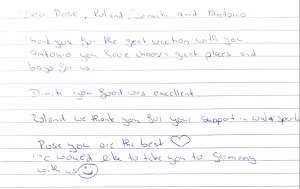 Dear Rose, Roland, Dimitri and Antonio
Thank you for the great vacation with you
Antonio you have chosen great places and
bays for us.
Dimitri you food was excellent.
Roland we thank you for your support in watersports
Rose you are the best
We would like to take you to Germany
with us